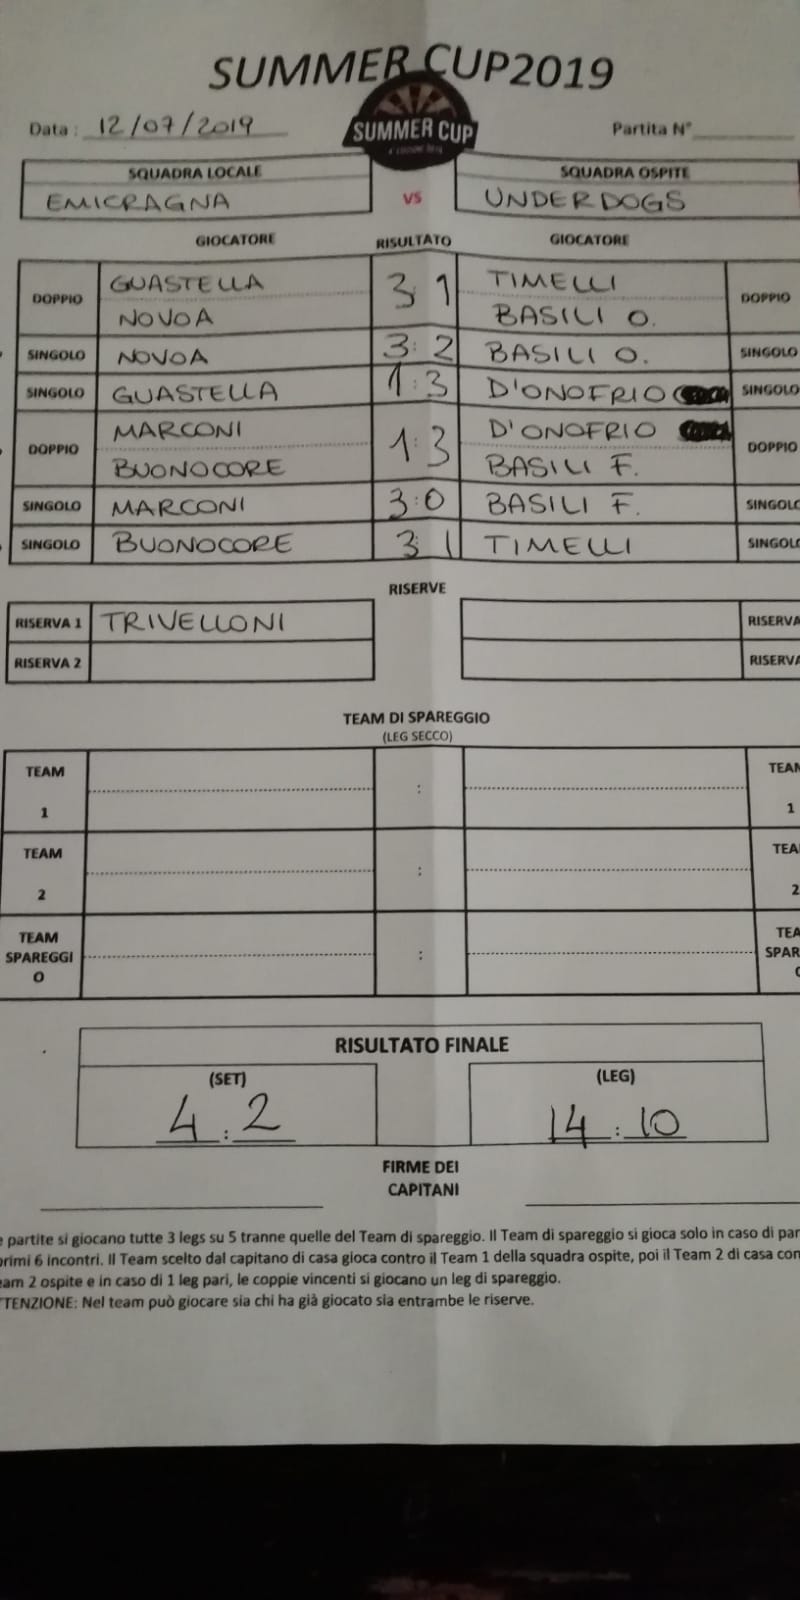 SUMMER CUP2019
Data : 12/07/2019
SUMMER CUP
Partita N°
SQUADRA LOCALE
SQUADRA OSPITE
EMICRAGNA
VS
UNDERDOGS
GIOCATORE RISULTATO GIOCATORE
DOPPIO GUASTELLA 3:1 TIMELLI DOPPIO
NOVOA BASILI O.
SINGOLO NOVOA 3:2 BASILI O. SINGOLO
SINGOLO GUASTELLA 1:3 D'ONOFRIO SINGOLO
DOPPIO MARCONI 1:3 D'ONOFRIO DOPPIO
BUONOCORE BASILI F.
SINGOLO MARCONI 3:0 BASILI F. SINGOLO
SINGOLO BUONOCORE 3:1 TIMELLI SINGOLO
RISERVE
RISERVA 1 TRIVELLONI RISERVA
RISERVA 2 RISERVA
TEAM DI SPAREGGIO
(LEG SECCO)
TEAM : TEAM
1 1
TEAM : TEA
2 2
TEAM TEA
SPAREGGI : SPAR
O
RISULTATO FINALE
(SET) (LEG)
4:2 14:10
FIRME DEI
CAPITANI
e partite si giocano tutte 3 legs su 5 tranne quelle del Team di spareggio. Il Team di spareggio si gioca solo in caso di par
primi 6 incontri. Il Team scelto dal capitano di casa gioca contro il Team 1 della squadra ospite, poi il Team 2 di casa con
eam 2 ospite e in caso di 1 leg pari, le coppie vincenti si giocano un leg di spareggio.
TTENZIONE: Nel team può giocare sia chi ha già giocato sia entrambe le riserve.